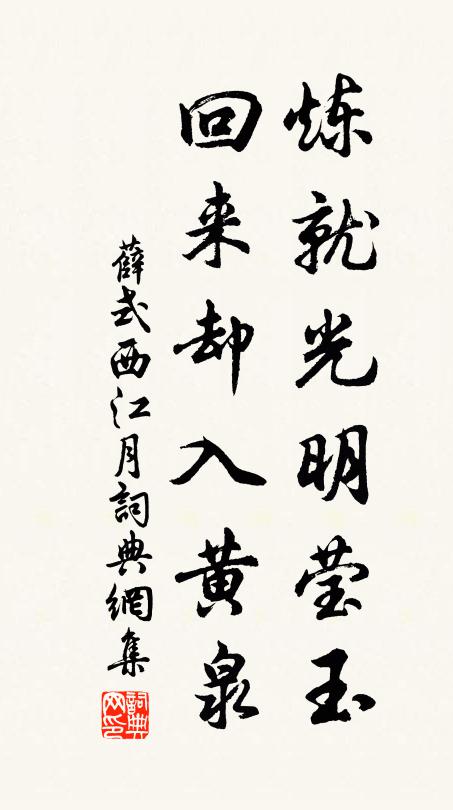 炼就光明莹玉
回来却入黄泉
薛式西江月詞典網集
詞典网印